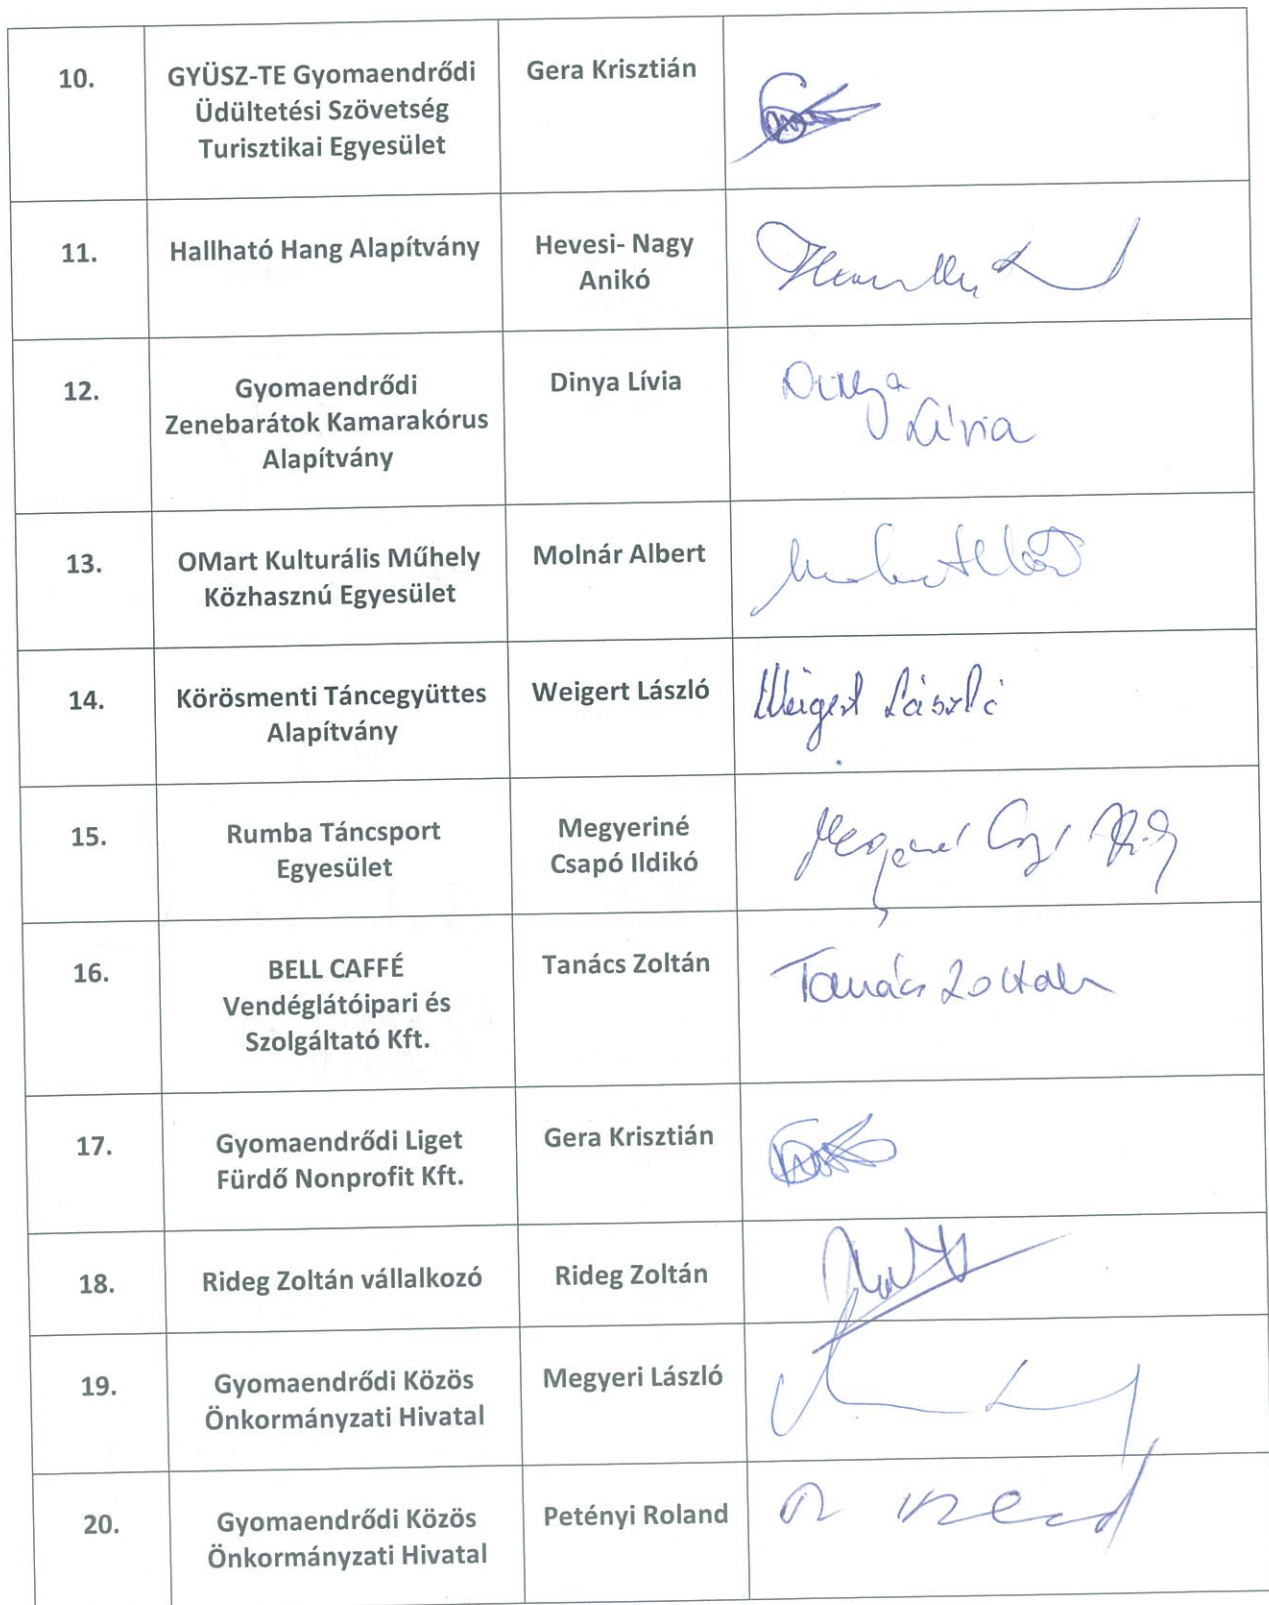 10.
GYÜSZ-TE Gyomaendrődi
Üdültetési Szövetség
Turisztikai Egyesület
Gera Krisztián
11.
Hallható Hang Alapítvány
Hevesi- Nagy
Anikó
12.
Gyomaendrődi
Zenebarátok Kamarakórus
Alapítvány
Dinya Lívia
Dinya
Lívia
13.
OMart Kulturális Műhely
Közhasznú Egyesület
Molnár Albert
14.
Körösmenti Táncegyüttes
Alapítvány
Weigert László
Weigert László
15.
Rumba Táncsport
Egyesület
Megyeriné
Csapó Ildikó
16.
BELL CAFFÉ
Vendéglátóipari és
Szolgáltató Kft.
Tanács Zoltán
Tanács Zoltán
17.
Gyomaendrődi Liget
Fürdő Nonprofit Kft.
Gera Krisztián
18.
Rideg Zoltán vállalkozó
Rideg Zoltán
19.
Gyomaendrődi Közös
Önkormányzati Hivatal
Megyeri László
20.
Gyomaendrődi Közös
Önkormányzati Hivatal
Petényi Roland